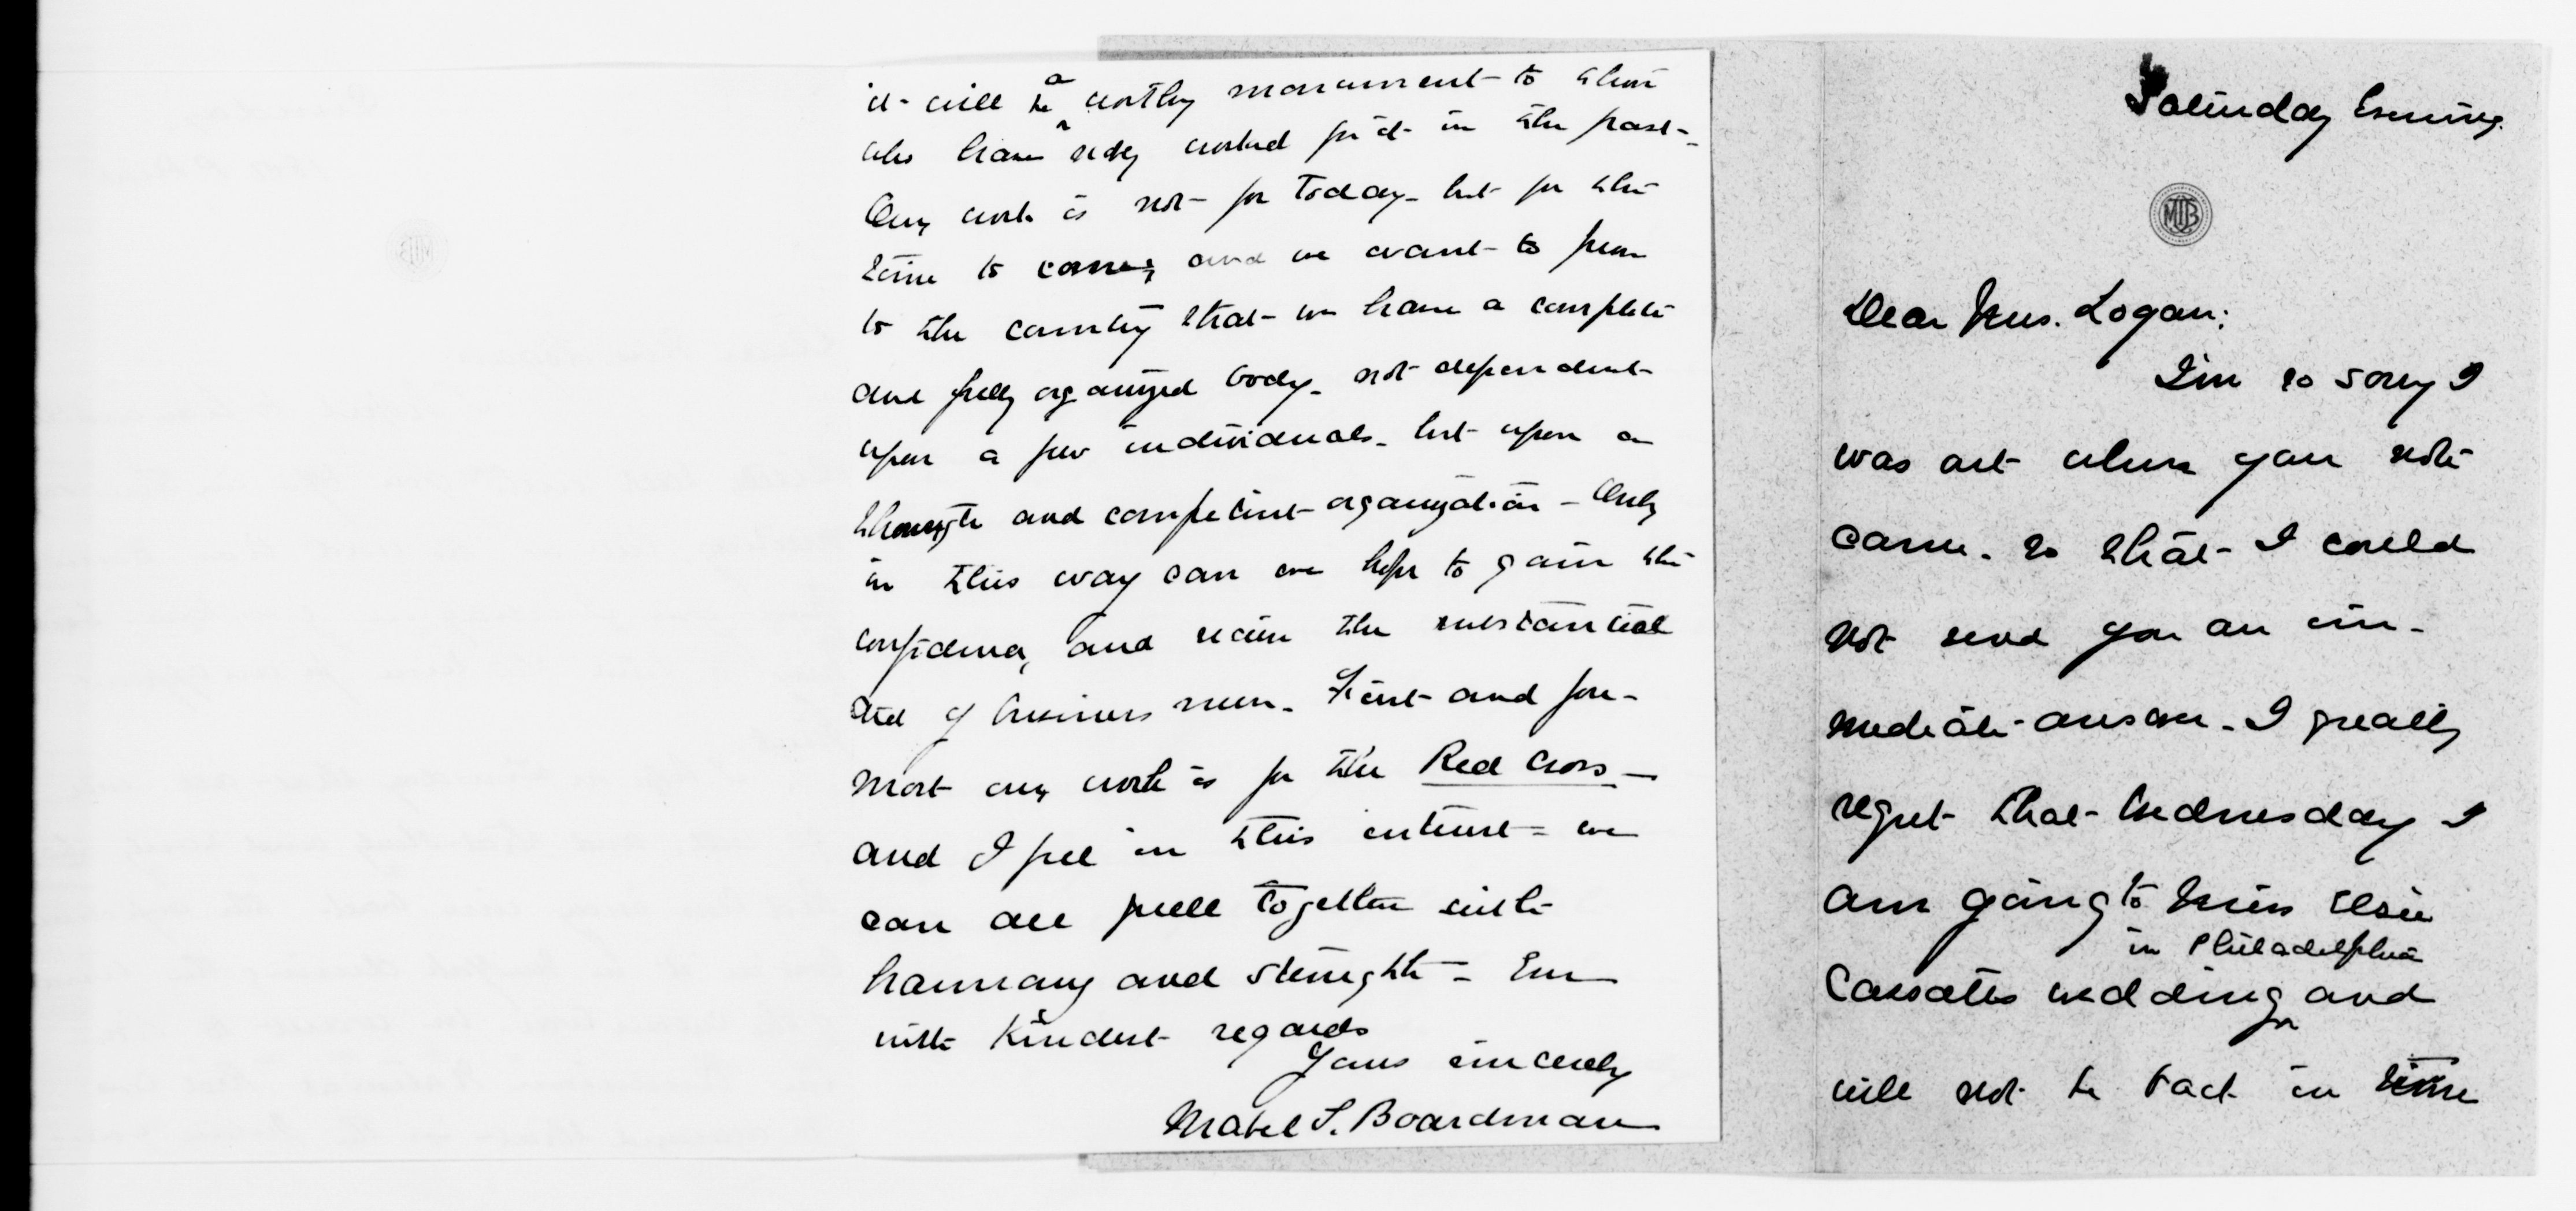 it will be a worthy monument to those
who have only worked for it in the past.
Our work is not for today, but for the
time to come, and we want to prove
to the country that we have a complete
and fully organized body, not dependent
upon a few individuals, but upon a
through and competent organization - Only
in this way can we hope to gain the
confidence, and secure the substantial
aid of business men. First and fore-
most our work is for the Red Cross -
and I feel in this interest we
can all pull together with
harmony and strength -
with kindest regards
Yours sincerely
Mabel T. Boardman
Saturday Evening.
MTB
Dear Mrs. Logan:
I'm so sorry I
was out when your note
came, so that I could
not send you an im-
mediate answer. I greatly
regret that Wednesday I
am going to Miss Elsie
in Philadelphia
Cassatts wedding and
will not be back in time